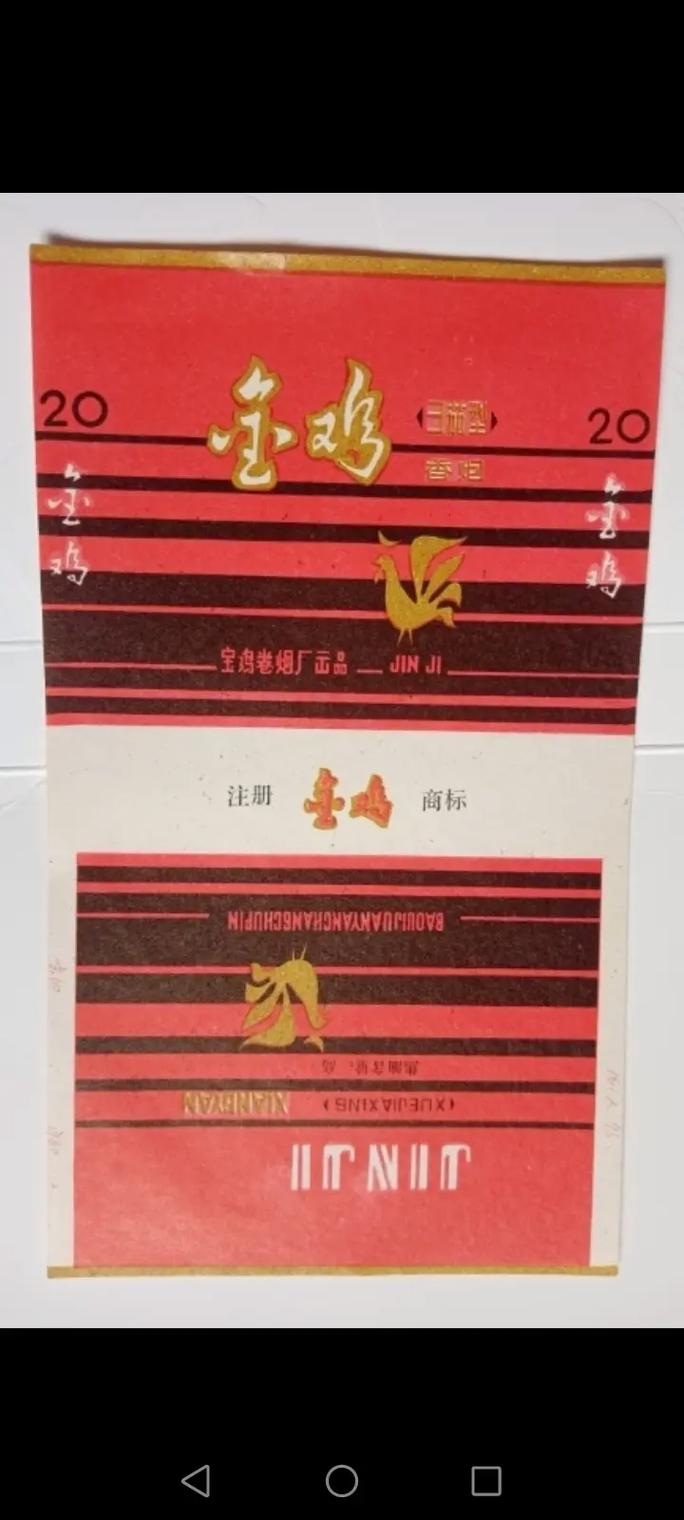 金鸡
20
20
香烟
金鸡
金鸡
宝鸡卷烟厂出品
JIN JI
注册 金鸡 商标
BAOJIJUANYANCHANGCHUPIN
焦油含量:高
(XUEJIAXING) XIANGYAN
JIN JI